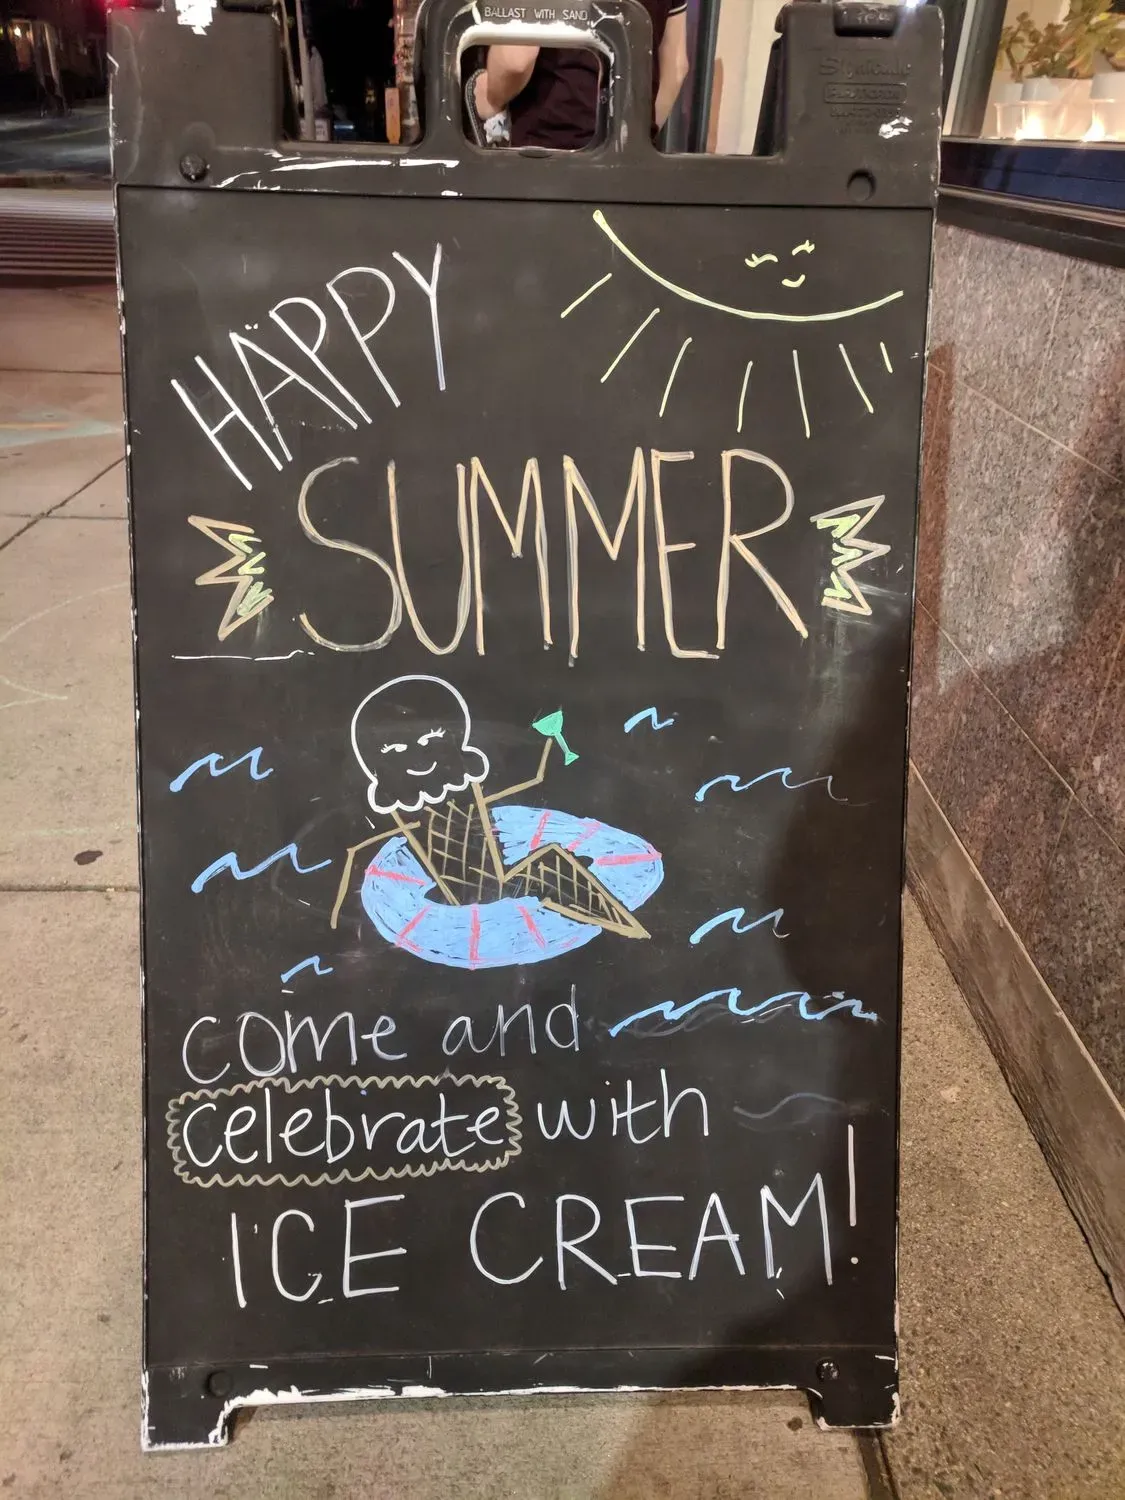 BALLAST WITH SAND
HAPPY
SUMMER
come and
celebrate with
ICE CREAM!